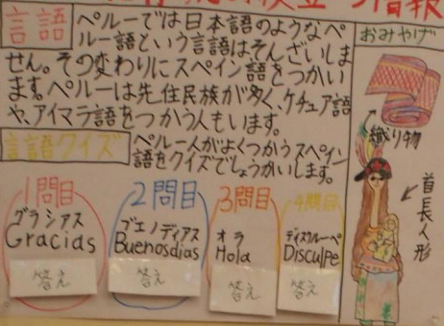 言語
ペルーでは日本語のようなペ
ルー語という言語はそんざいしま
せん。その変わりにスペイン語をつかい
ます。ペルーは先住民族が多く、ケチュア語
や、アイマラ語をつかう人もいます。
言語クイズ
ペルー人がよくつかうスペイン
語をクイズでしょうかいします。
1問目
グラシアス
Gracias
答え
2問目
ブエノディアス
Buenosdias
答え
3問目
オラ
Hola
答え
4問目
ディスクルーペ
Disculpe
答え
おみやげ
織り物
首長人形